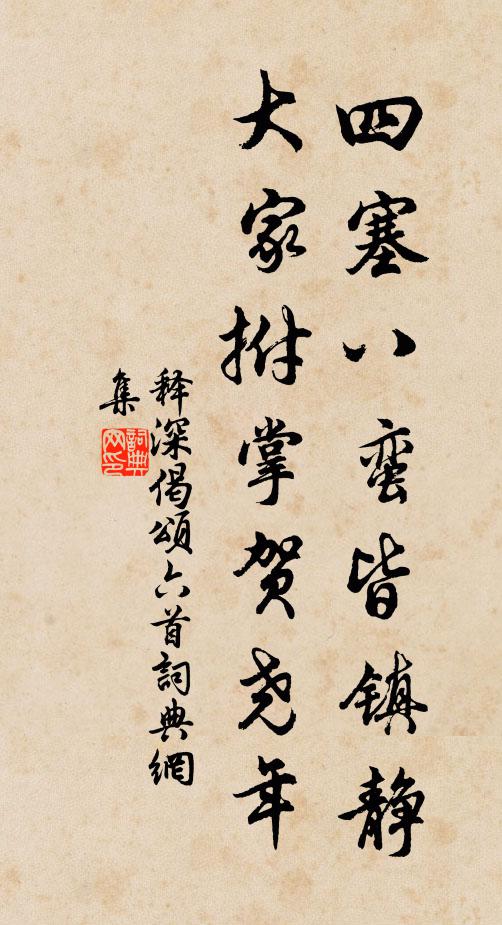 四塞八蛮皆镇静
大家拊掌贺尧年
释深偈颂六首詞典網
集
詞典網印